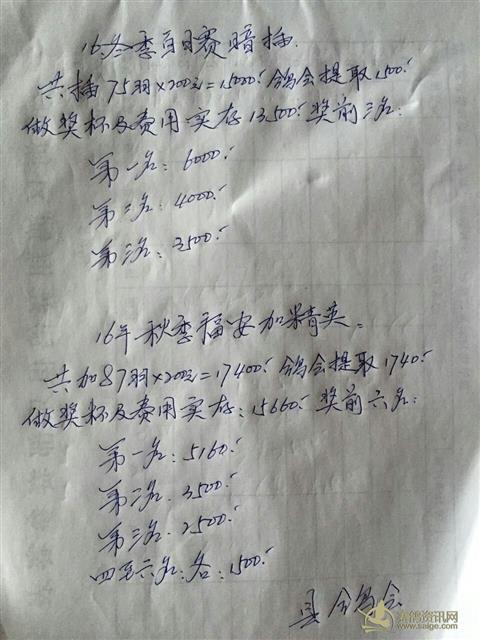 16.冬季百日赛暗插.
共插75羽×200元=15000.- 鸽会提取1500.-
做奖杯及费用实存13500.- 奖前三名:
第一名: 6000.-
第二名: 4000.-
第三名: 3500.-
16年秋季福安加米精英。
共加87羽×200元=17400.- 鸽会提取1740.-
做奖杯及费用实存: 15660.- 奖前六名:
第一名: 5160.-
第二名. 3500.-
第三名: 2500.-
四至六名: 各: 1500.-
县合鸽会
赛鸽资讯网
www.saige.com